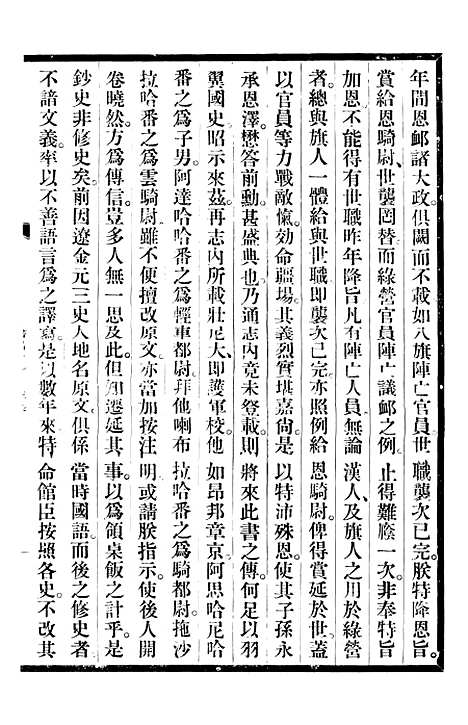 年間恩䘏諸大政。俱闕而不載。如八旗陣亡官員世職襲次已完。朕特降恩旨。
賞給恩騎尉、世襲罔替。而綠營官員陣亡議䘏之例。止得難廕一次。非奉特旨
加恩不能得有世職。昨年降旨。凡有陣亡人員。無論漢人、及旗人之用於綠營
者。總與旗人一體給與世職。卽襲次已完。亦照例給恩騎尉。俾得賞延於世。蓋
以官員等力戰敵愾。効命疆場。其義烈實堪嘉尙。是以特沛殊恩。使其子孫永
承恩澤。懋答前勳。甚盛典也。乃通志內竟未登載。則將來此書之傳。何足以羽
翼國史。昭示來茲。再志內所載壯尼大、卽護軍校。他如昂邦章京、阿思哈尼哈
番之爲子男。阿達哈哈番之爲輕車都尉。拜他喇布拉哈番之爲騎都尉。拖沙
拉哈番之爲雲騎尉。雖不便擅改原文。亦當加按注明。或請朕指示。使後人開
卷曉然。方爲傳信。豈多人無一思及此。但知遷延其事。以爲領桌飯之計乎。是
鈔史非修史矣。前因遼金元三史人地名原文。俱係當時國語。而後之修史者
不諳文義。率以不善語言爲之譯寫。是以數年來特命館臣按照各史。不改其